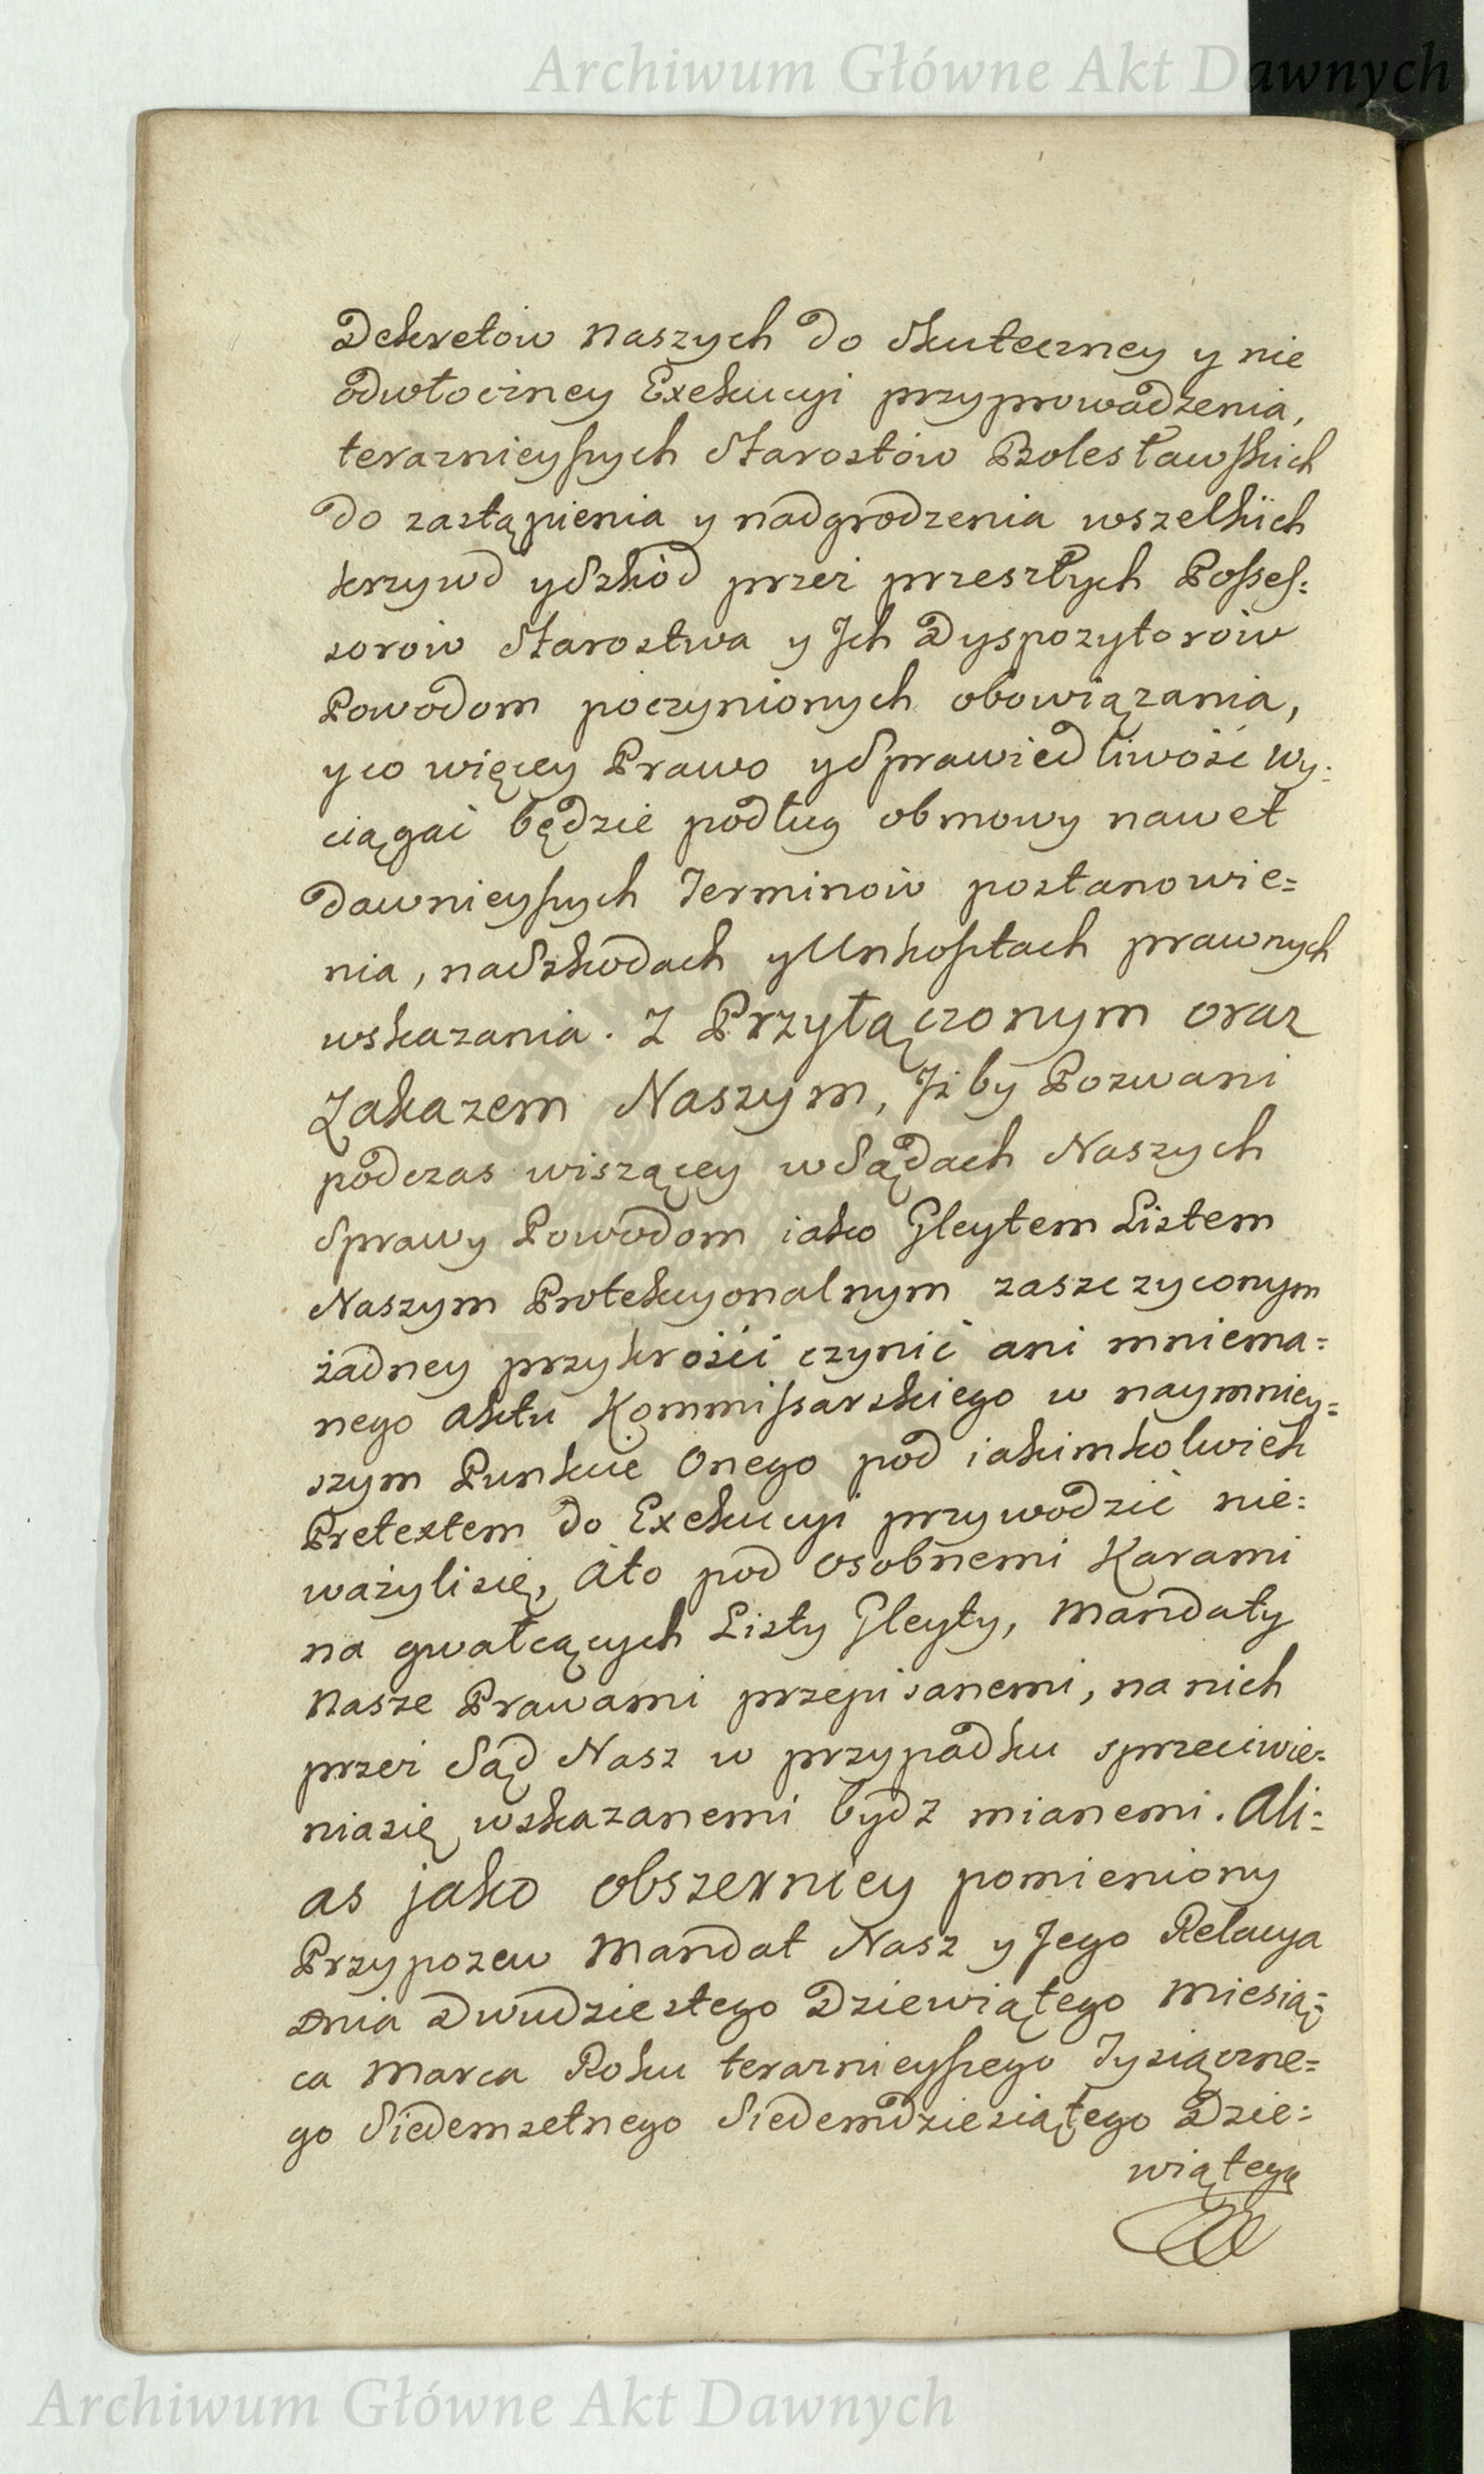 Archiwum Główne Akt Dawnych
Dekretow Naszych do skuteczney y nie
odwłoczney Exekucyi przyprowadzenia,
teraznieyszych Starostow Bolesławskich
do zastąpienia y nadgrodzenia wszelkich
krzywd y Szkód przez przeszłych Posses:
sorow Starostwa y Jch Dyspozytorow
Powodom poczynionych obowiązania,
y co więcey Prawo y Sprawiedliwość wy:
ciągać będzie podług obmowy nawet
dawnieyszych Terminow postanowie=
nia, na Szkodach y Unkosztach prawnych
wskazania. Z Przyłączonym oraz
Zakazem Naszym, Jż by Pozwani
podczas wiszącey w Sądach Naszych
Sprawy Powodom iako Gleytem Listem
Naszym Protekcyonalnym zaszczyconym
żadney przykrości czynić ani mniema=
nego Aktu Kommissarskiego w naymniey=
szym Punkcie Onego pod iakimkolwiek
Pretextem do Exekucyi przywodzić nie=
ważyli się, Ato pod osobnemi Karami
na gwałcących Listy Gleyty, Mandaty
Nasze Prawami przepisanemi, na nich
przez Sąd Nasz w przypadku sprzeciwie=
nia się wskazanemi bydz mianemi. Ali=
as jako obszerniey pomieniony
Przypozew Mandat Nasz y Jego Relacya
Dnia Dwudziestego Dziewiątego Miesią=
ca Marca Roku teraznieyszego Tysiączne=
go Siedemsetnego Siedemdziesiątego Dzie=
wiątego
Archiwum Główne Akt Dawnych